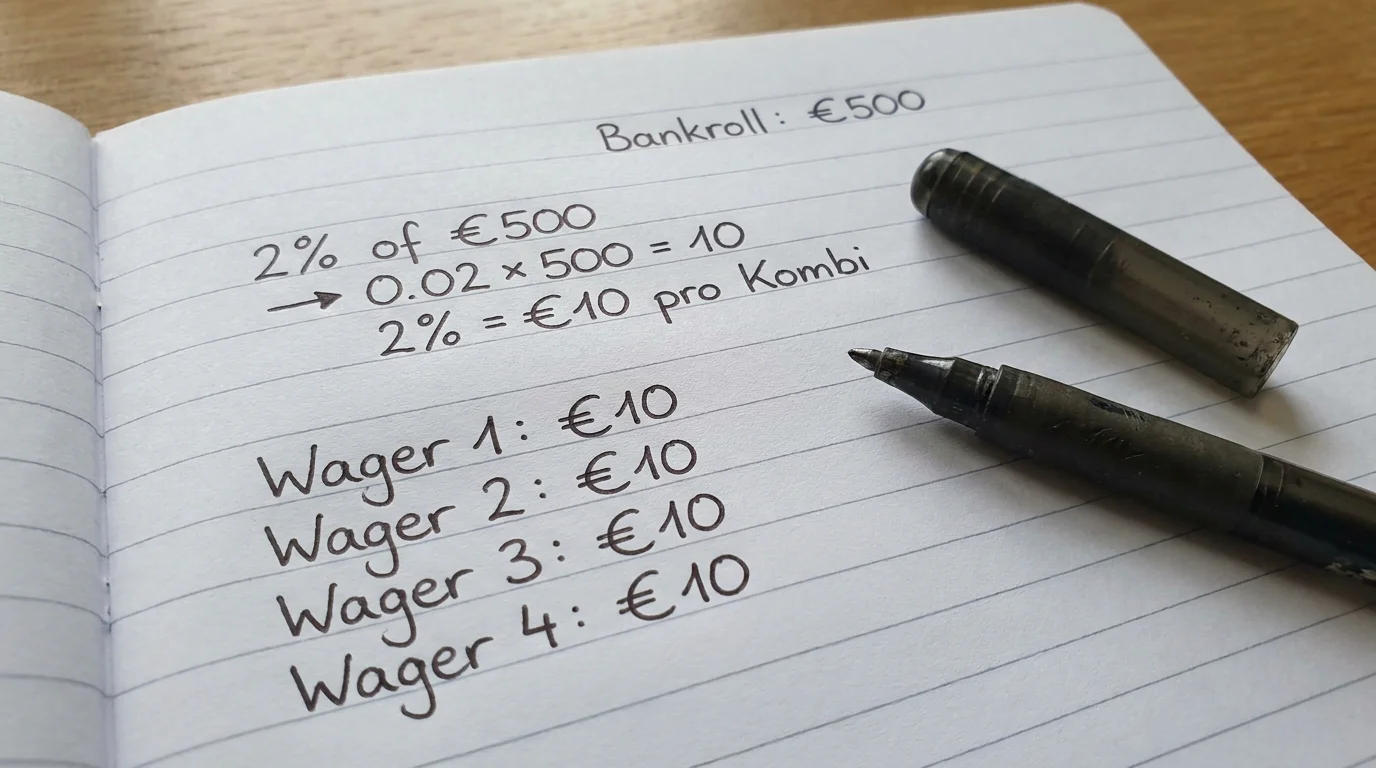 Bankroll: €500
2% of €500
→ 0.02 × 500 = 10
2% = €10 pro Kombi
Wager 1: €10
Wager 2: €10
Wager 3: €10
Wager 4: €10